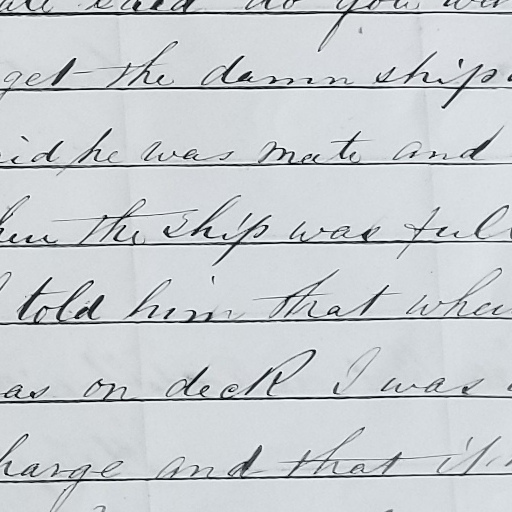 said do you
get the damn ship
he was mate and
the ship was full
told him that when
as on deck I was
and that